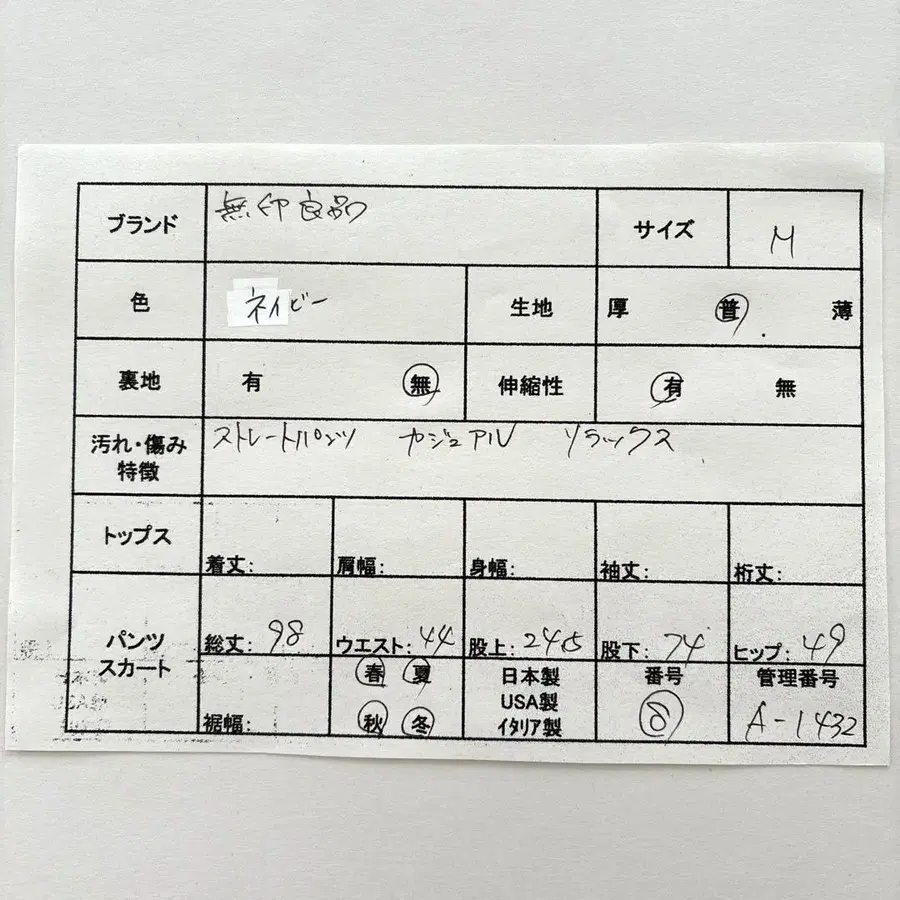 ブランド 無印良品 サイズ M
色 ネイビー 生地 厚 普 薄
裏地 有 無 伸縮性 有 無
汚れ・傷み
特徴
ストレートパンツ カジュアル リラックス
トップス
着丈: 肩幅: 身幅: 袖丈: 裄丈:
パンツ
スカート
総丈: 98 ウエスト: 44 股上: 24.5 股下: 74 ヒップ: 49
裾幅:
春 夏
秋 冬
日本製
USA製
イタリア製
番号
管理番号
A-1432